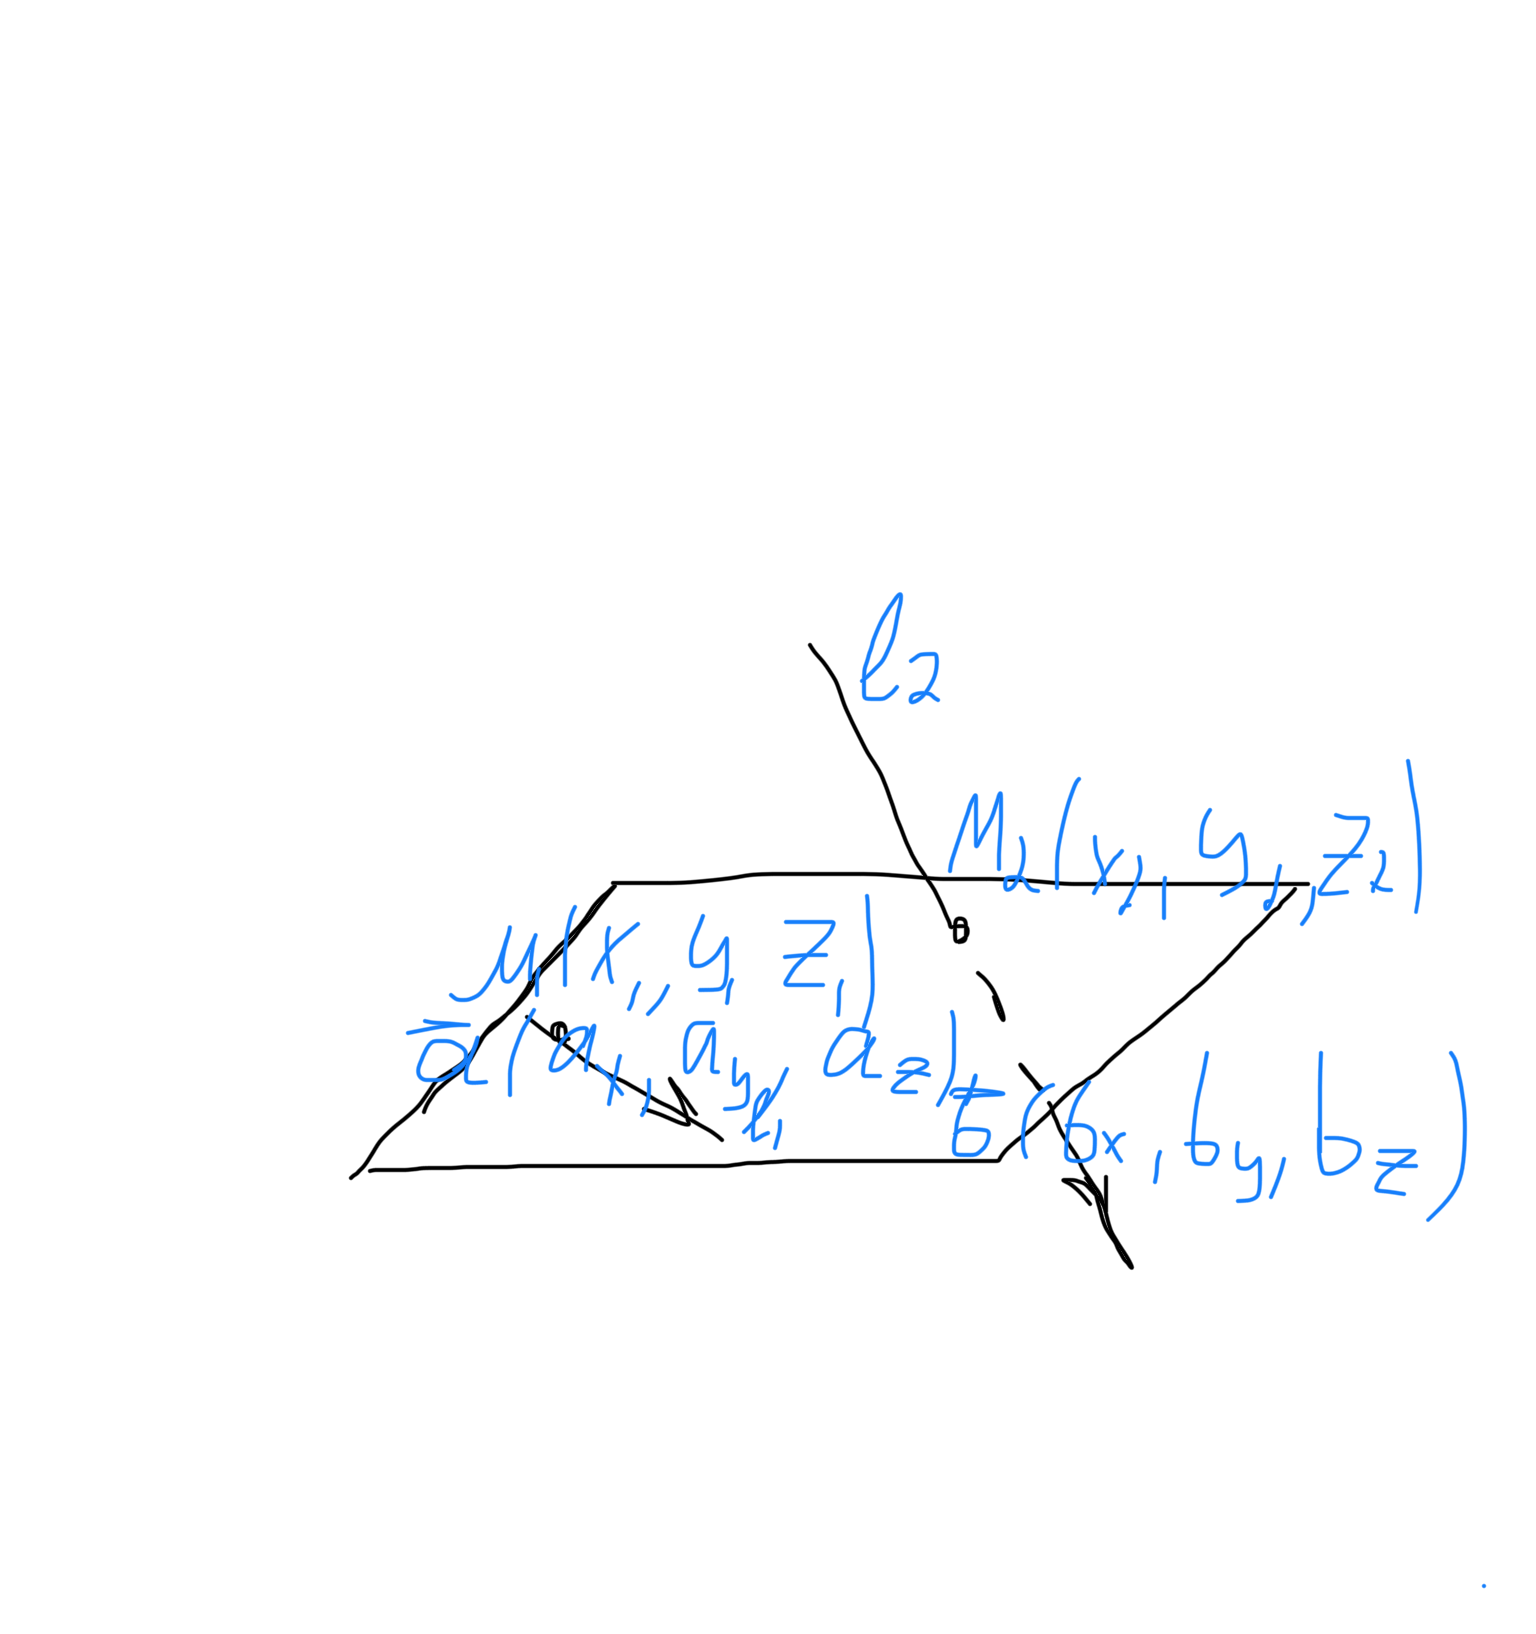 l₂
M₂(x₂, y₂, z₂)
M₁(x₁, y₁ z₁)
a̅(aₓ, a_y, a_z)
l₁
b̅(bx, by, bz)